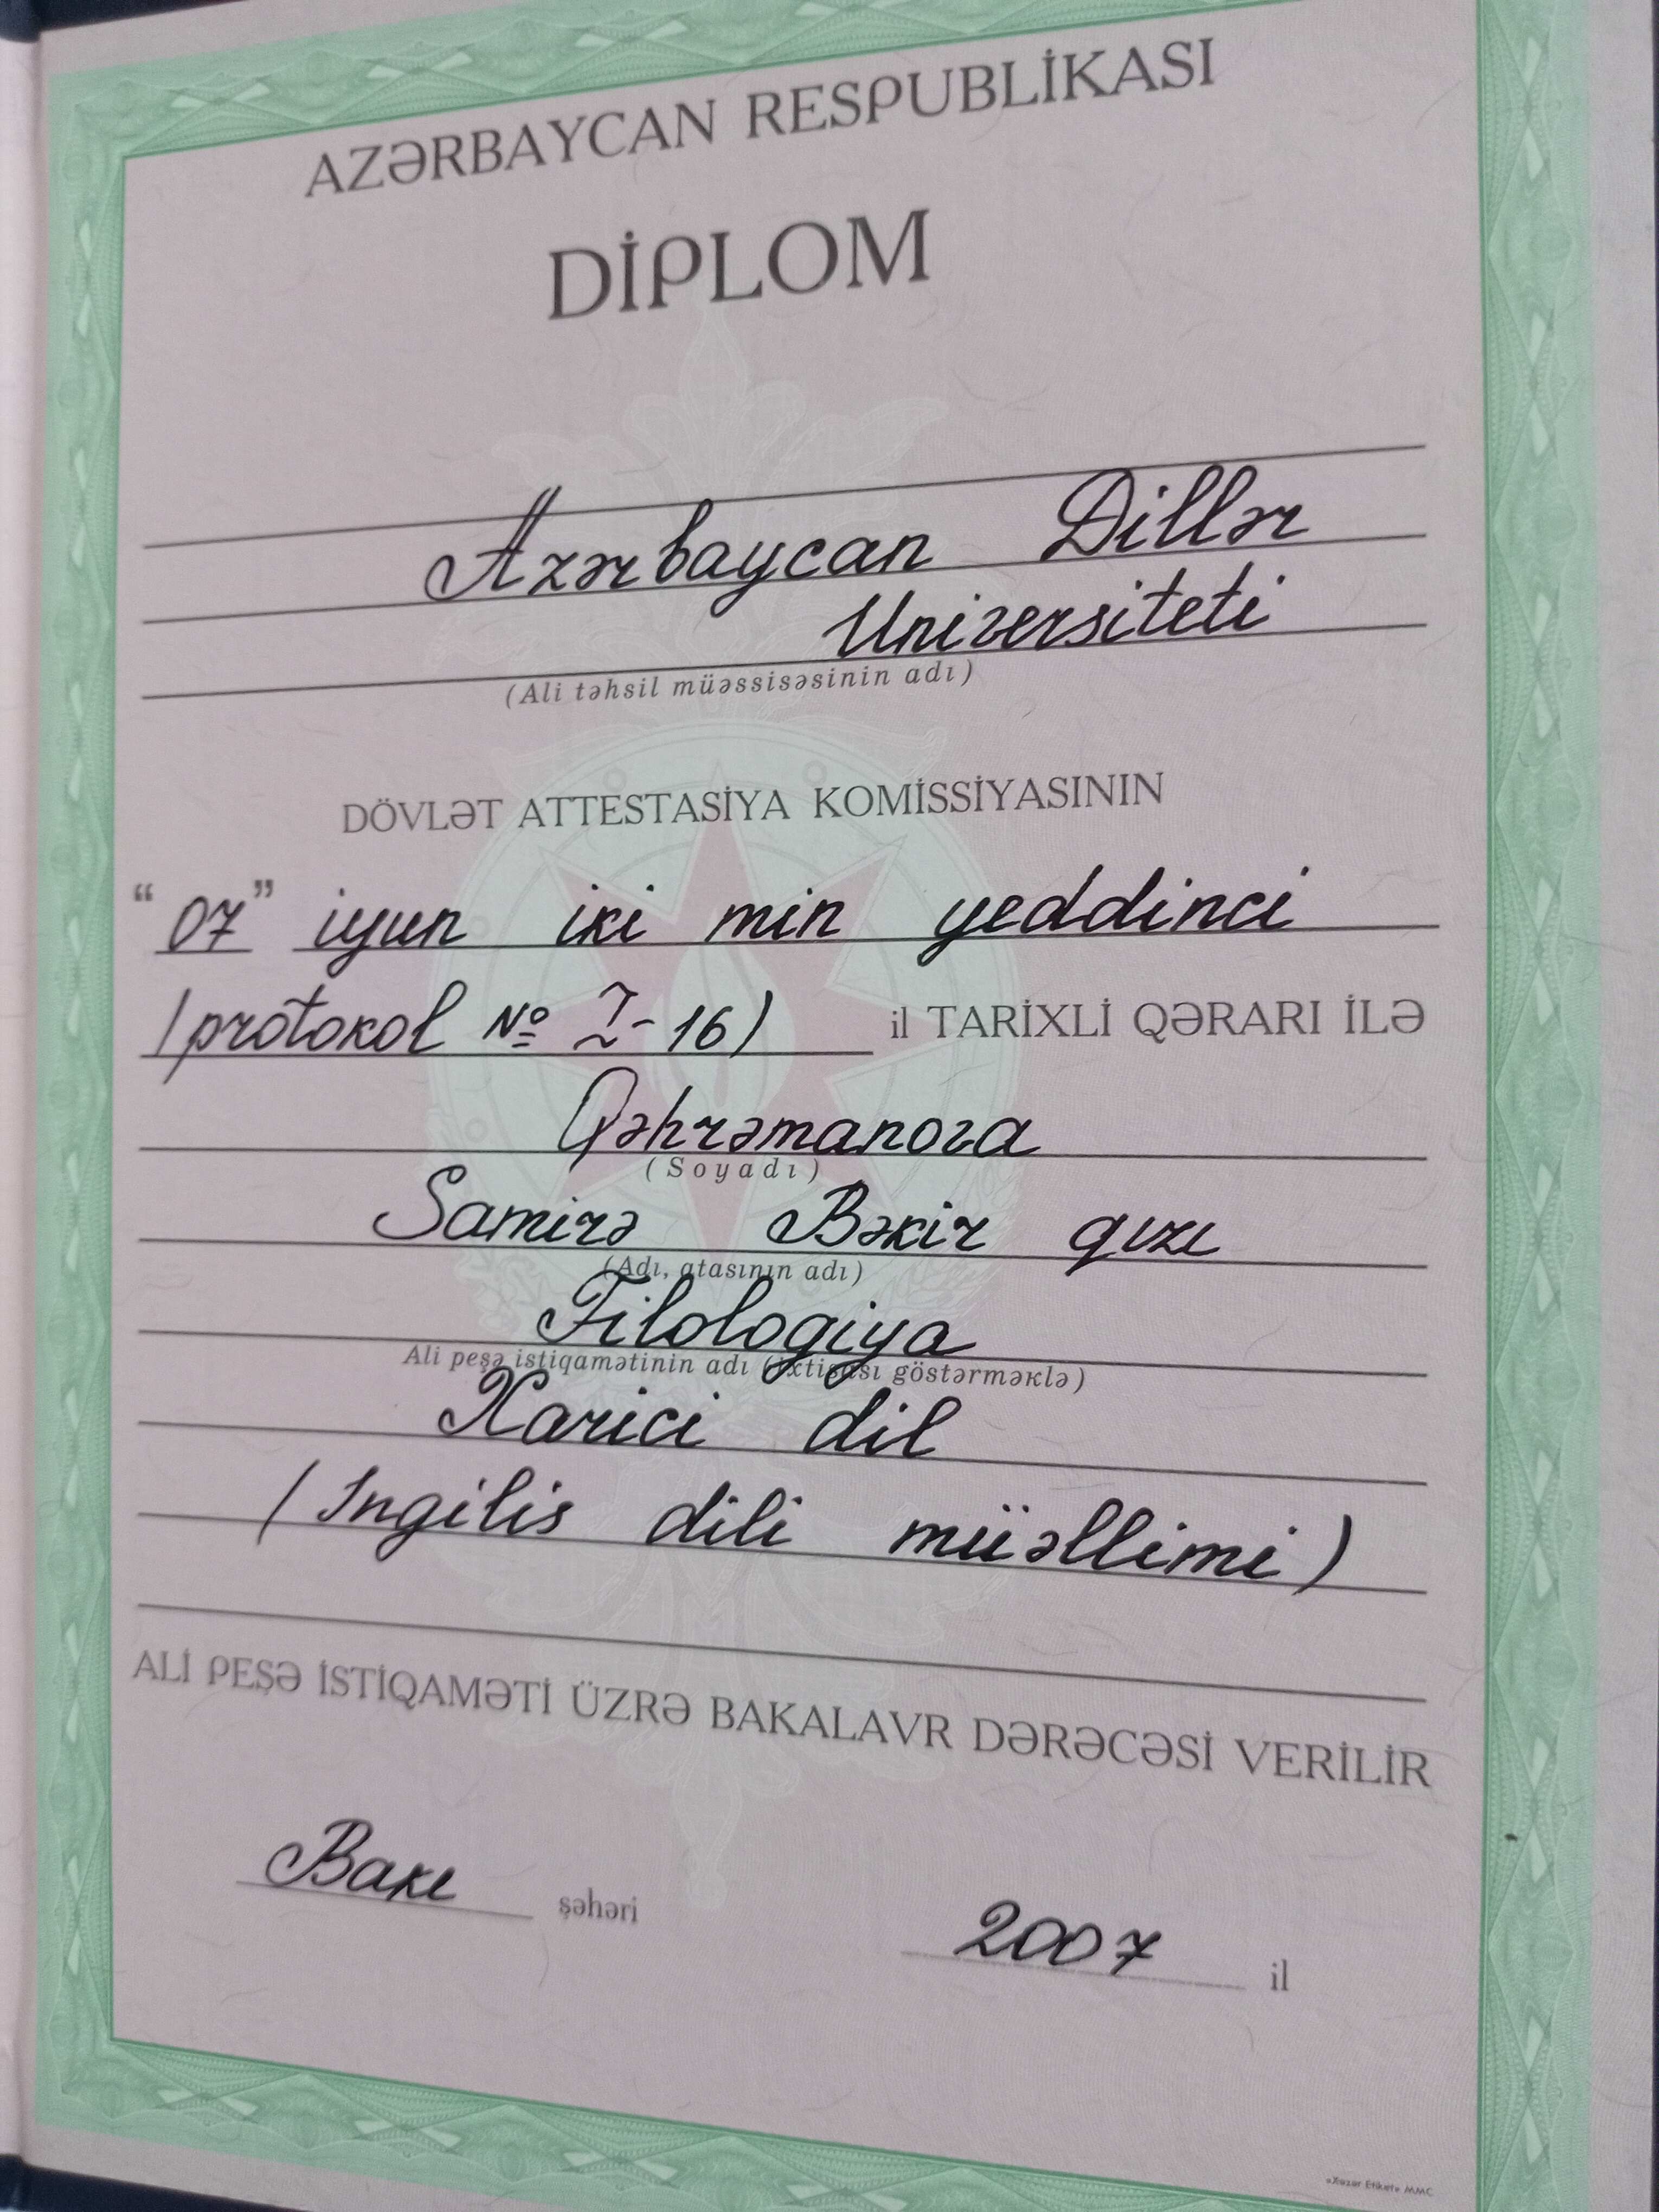 AZƏRBAYCAN RESPUBLİKASI
DİPLOM
Azərbaycan Dillər
Universiteti
(Ali təhsil müəssisəsinin adı)
DÖVLƏT ATTESTASİYA KOMİSSİYASININ
“07” iyun iki min yeddinci
(protokol № I-16) il TARİXLİ QƏRARI İLƏ
Qəhrəmanova
(Soyadı)
Samirə Bəkir qızı
(Adı, atasının adı)
Filologiya
Ali peşə istiqamətinin adı (ixtisası göstərməklə)
Xarici dil
(Ingilis dili müəllimi)
ALİ PEŞƏ İSTİQAMƏTİ ÜZRƏ BAKALAVR DƏRƏCƏSİ VERİLİR
Bakı şəhəri
2007 il
«Xəzər Etiket» MMC